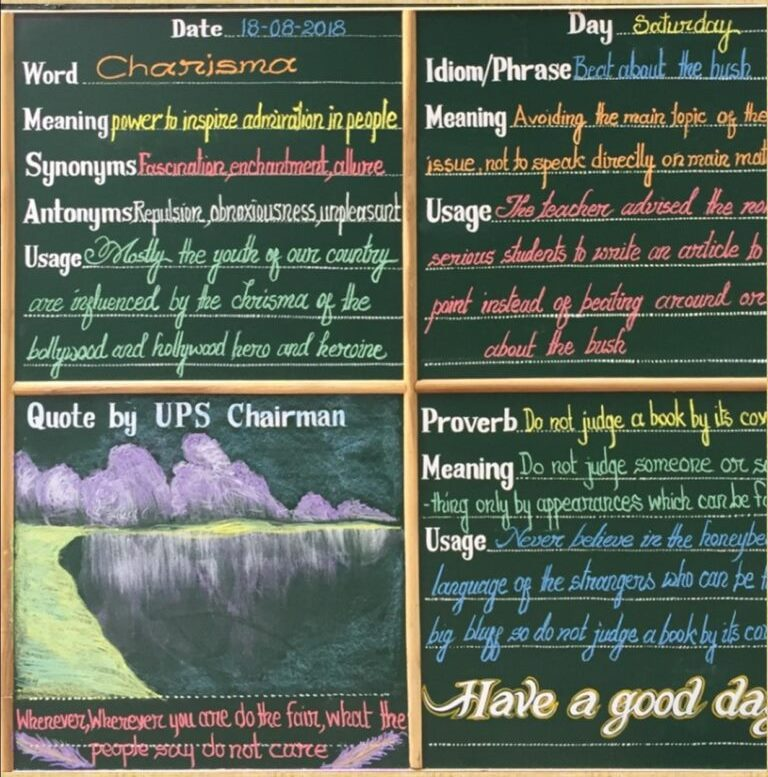 Date 18-08-2018
Word Charisma
Meaning power to inspire admiration in people
Synonyms Fascination, enchantment, allure
Antonyms Repulsion, obnoxiousness, unpleasant
Usage Mostly the youth of our country
are influenced by the chrisma of the
bollywood and hollywood hero and heroine
Day Saturday
Idiom/Phrase Beat about the bush
Meaning Avoiding the main topic of the
issue, not to speak directly on main mat
Usage The teacher advised the
serious students to write an article to
point instead of beating around or
about the bush
Quote by UPS Chairman
Whenever, Wherever you are do the fair, what the
people say do not care
Proverb Do not judge a book by its cov
Meaning Do not judge someone or so
-thing only by appearances which can be f
Usage Never believe in the honeybe
language of the strangers who can be
big bluff so do not judge a book by its co
Have a good day